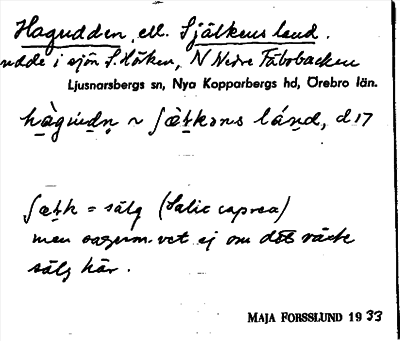 Hagudden, ell. Själkens land.
udde i sjön S. Höken, N Nedre Fäbobacken
Ljusnarsbergs sn, Nya Kopparbergs hd, Örebro län.
hàgúdn ~ ʃæ̀tkəns lánd, d 17
ʃætk = sälg (Salix caprea)
men sagesm. vet ej om det växte
sälg här.
MAJA FORSSLUND 1933